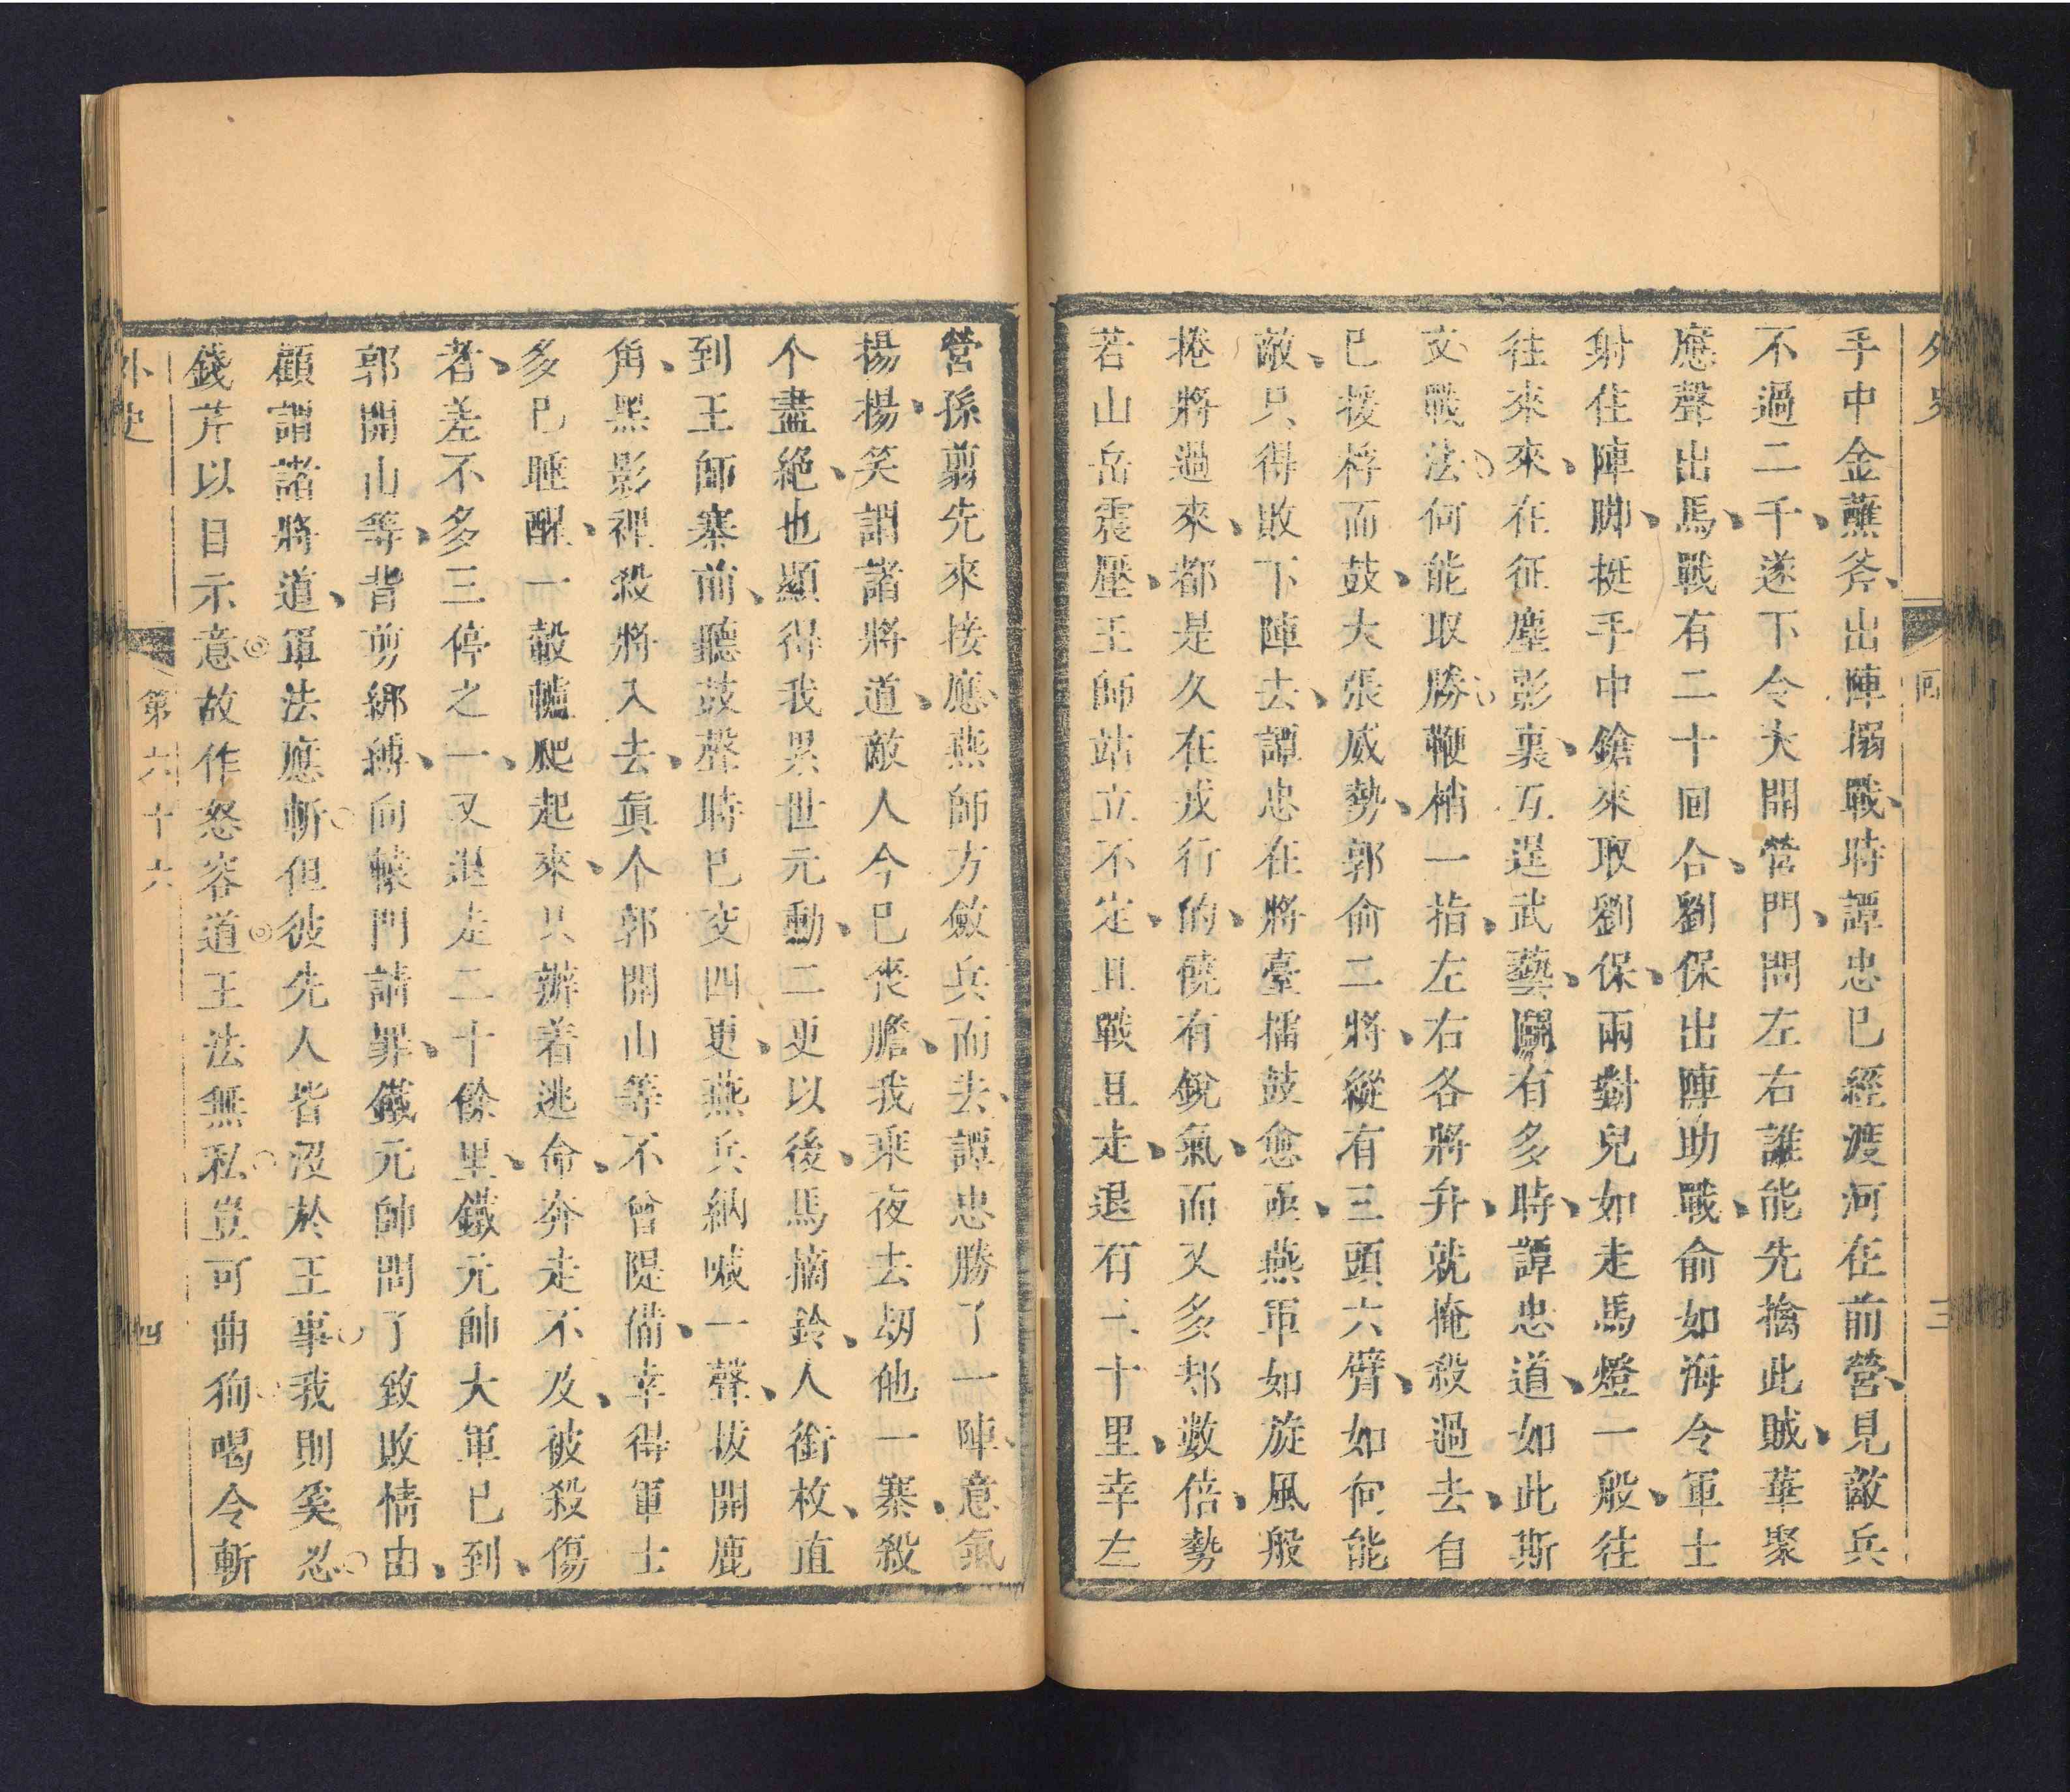 外史
回
三
手中金蘸斧、出陣搦戰、時譚忠已經渡河在前營、見敵兵
不過二千、遂下令大開營門、問左右誰能先擒此賊、華聚
應聲出馬、戰有二十回合、劉保出陣助戰、俞如海令軍士
射住陣脚、挺手中鎗來取劉保、兩對兒如走馬燈一般、往
往來來、在征塵影裏、互逞武藝、鬭有多時、譚忠道、如此斯
文戰法、何能取勝、鞭梢一指、左右各將弁、就掩殺過去、自
已援桴而鼓、大張威勢、郭俞二將、縱有三頭六臂、如何能
敵、只得敗下陣去、譚忠在將臺擂鼓愈亟、燕軍如旋風般
捲將過來、都是久在戎行的、饒有銳氣、而又多却數倍、勢
若山岳震壓、王師站立不定、且戰且走、退有二十里、幸左
營孫翦先來接應、燕師方斂兵而去、譚忠勝了一陣、意氣
揚揚、笑謂諸將道、敵人今已喪膽、我乘夜去刼他一寨、殺
个盡絶、也顯得我累世元勳、二更以後、馬摘鈴、人銜枚、直
到王師寨前、聽鼓聲時已交四更、燕兵納喊一聲、拔開鹿
角、黑影裡殺將入去、眞个郭開山等不曾隄備、幸得軍士
多已睡醒、一轂轆爬起來、只辦着逃命、奔走不及、被殺傷
者、差不多三停之一、又退走二十餘里、鐵元帥大軍已到、
郭開山等、背剪綁縛、向轅門請罪、鐵元帥問了致敗情由、
顧謂諸將道、軍法應斬但彼先人皆沒於王事我則奚忍
錢芹以目示意故作怒容道王法無私豈可曲狥喝令斬
外史
第六十六
四